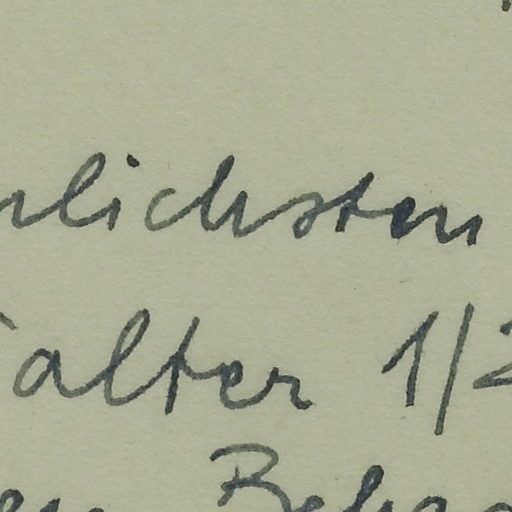 nlichsten
alter 1/2
en Beha